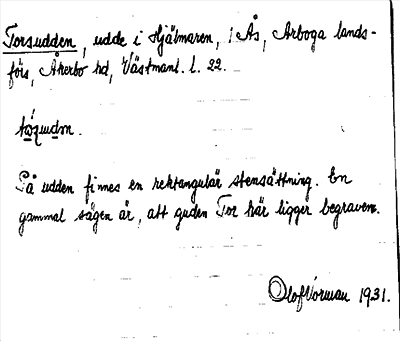 Torsudden, udde i Hjälmaren, i Ås, Arboga lands-
förs, Åkerbo hd, Västmanl. l. 22.
På udden finnes en rektangulär stensättning. En
gammal sägen är, att guden Tor här ligger begraven.
Olof Norman 1931.